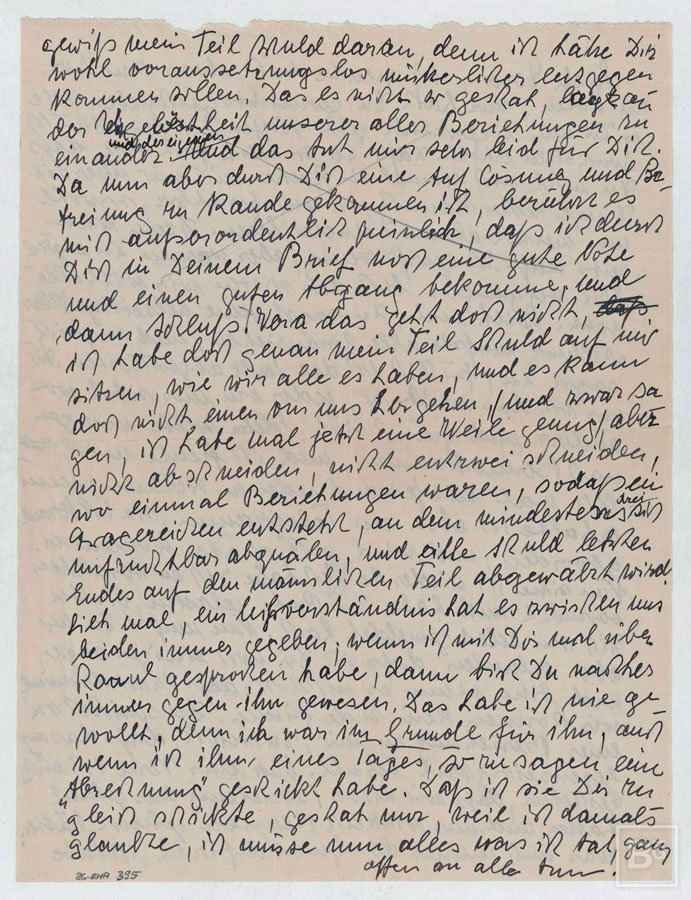 gewiß mein Teil Schuld daran, denn ich hätte Dir
wohl voraussetzungslos mütterlicher entgegen
kommen sollen. Das es nicht so geschah, lag an
der unserer aller Beziehungen zu
und der eigenen
einander. Und das tut mir sehr leid für Dich.
Da nun aber durch Dich eine Auflösung und Be-
freiung zu Stande gekommen ist, berührt es
mich außerordentlich peinlich, daß ich durch
Dich in Deinem Brief noch eine gute Note
und einen guten Abgang bekomme, und
dann Schluß. Vera das geht doch nicht, daß
ich habe doch genau mein Teil Schuld auf mir
sitzen, wie wir alle es haben, und es kann
doch nicht einer von uns hergehen, (und zwar sa
gen, ich habe mal jetzt eine Weile genug) aber
nicht abschneiden, nicht entzwei schneiden,
wo einmal Beziehungen waren, sodaß ein
Fragezeichen entsteht, an dem mindestens drei sich
unfruchtbar abquälen, und alle Schuld letzten
Endes auf den männlichen Teil abgewälzt wird.
Sieh mal, ein Mißverständnis hat es zwischen uns
beiden immer gegeben; wenn ich mit Dir mal über
Raoul gesprochen habe, dann bist Du nachher
immer gegen ihn gewesen. Das habe ich nie ge
wollt, denn ich war im Grunde für ihn, auch
wenn ich ihm, eines Tages, so zu sagen eine
"Abrechnung" geschickt habe. Daß ich sie Dir zu
gleich schickte, geschah nur, weil ich damals
glaubte, ich müsse nun alles was ich tat, ganz
offen an alle tun.
BG-RHA 395
BG